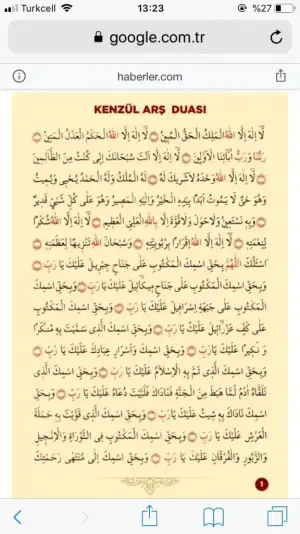 Turkcell 13:23 %27
google.com.tr
haberler.com
KENZÜL ARŞ DUASI
لَا اِلٰهَ اِلَّا اللهُ الْمَلِكُ الْحَقُّ الْمُبِينُ لَا اِلٰهَ اِلَّا اللهُ الْحَكَمُ الْعَدْلُ الْمَتِينُ
رَبُّنَا وَرَبُّ اٰبَائِنَا الْاَوَّلِينَ لَا اِلٰهَ اِلَّا اَنْتَ سُبْحَانَكَ اِنِّى كُنْتُ مِنَ الظَّالِمِينَ
لَا اِلٰهَ اِلَّا اللهُ وَحْدَهُ لَاشَرِيكَ لَهُ لَهُ الْمُلْكُ وَلَهُ الْحَمْدُ يُحْيِى وَيُمِيتُ
وَهُوَ حَىٌّ لَا يَمُوتُ اَبَدًا بِيَدِهِ الْخَيْرُ وَاِلَيْهِ الْمَصِيرُ وَهُوَ عَلٰى كُلِّ شَيْئٍ قَدِيرٌ
وَبِهِ نَسْتَعِينُ وَلَاحَوْلَ وَلَاقُوَّةَ اِلَّا بِاللهِ الْعَلِىِّ الْعَظِيمِ لَا اِلٰهَ اِلَّا اللهُ شُكْرًا
لِنِعْمَتِهِ لَا اِلٰهَ اِلَّا اللهُ اِقْرَارًا بِرُبُوبِيَّتِهِ وَسُبْحَانَ اللهِ تَنْزِيهًا لِعَظَمَتِهِ
اَسْئَلُكَ اللّٰهُمَّ بِحَقِّ اسْمِكَ الْمَكْتُوبِ عَلٰى جَنَاحِ جِبْرِيلَ عَلَيْكَ يَا رَبِّ
وَبِحَقِّ اسْمِكَ الْمَكْتُوبِ عَلٰى جَنَاحِ مِيكَائِيلَ عَلَيْكَ يَا رَبِّ وَبِحَقِّ اسْمِكَ
الْمَكْتُوبِ عَلٰى جَبْهَةِ اِسْرَافِيلَ عَلَيْكَ يَا رَبِّ وَبِحَقِّ اسْمِكَ الْمَكْتُوبِ
عَلٰى كَفِّ عَزْرَائِيلَ عَلَيْكَ يَا رَبِّ وَبِحَقِّ اسْمِكَ الَّذِى سَمَّيْتَ بِهِ مُنْكَرًا
وَ نَكِيرًا عَلَيْكَ يَارَبِّ وَبِحَقِّ اسْمِكَ وَاَسْرَارِ عِبَادِكَ عَلَيْكَ يَا رَبِّ
وَبِحَقِّ اسْمِكَ الَّذِى تَمَّ بِهِ الْاِسْلَامُ عَلَيْكَ يَا رَبِّ وَبِحَقِّ اسْمِكَ الَّذِى
تَلَقَّاهُ اٰدَمُ لَمَّا هَبَطَ مِنَ الْجَنَّةِ فَنَادَاكَ فَلَبَّيْتَ دُعَاهُ عَلَيْكَ يَا رَبِّ وَبِحَقِّ
اسْمِكَ نَادَاكَ بِهِ شِيثُ عَلَيْكَ يَا رَبِّ وَبِحَقِّ اسْمِكَ الَّذِى قَوَّيْتَ بِهِ حَمَلَةَ
الْعَرْشِ عَلَيْكَ يَا رَبِّ وَبِحَقِّ اسْمِكَ الْمَكْتُوبِ فِى التَّوْرَاةِ وَالْاِنْجِيلِ
وَالزَّبُورِ وَالْفُرْقَانِ عَلَيْكَ يَا رَبِّ وَبِحَقِّ اسْمِكَ اِلٰى مُنْتَهٰى رَحْمَتِكَ
1